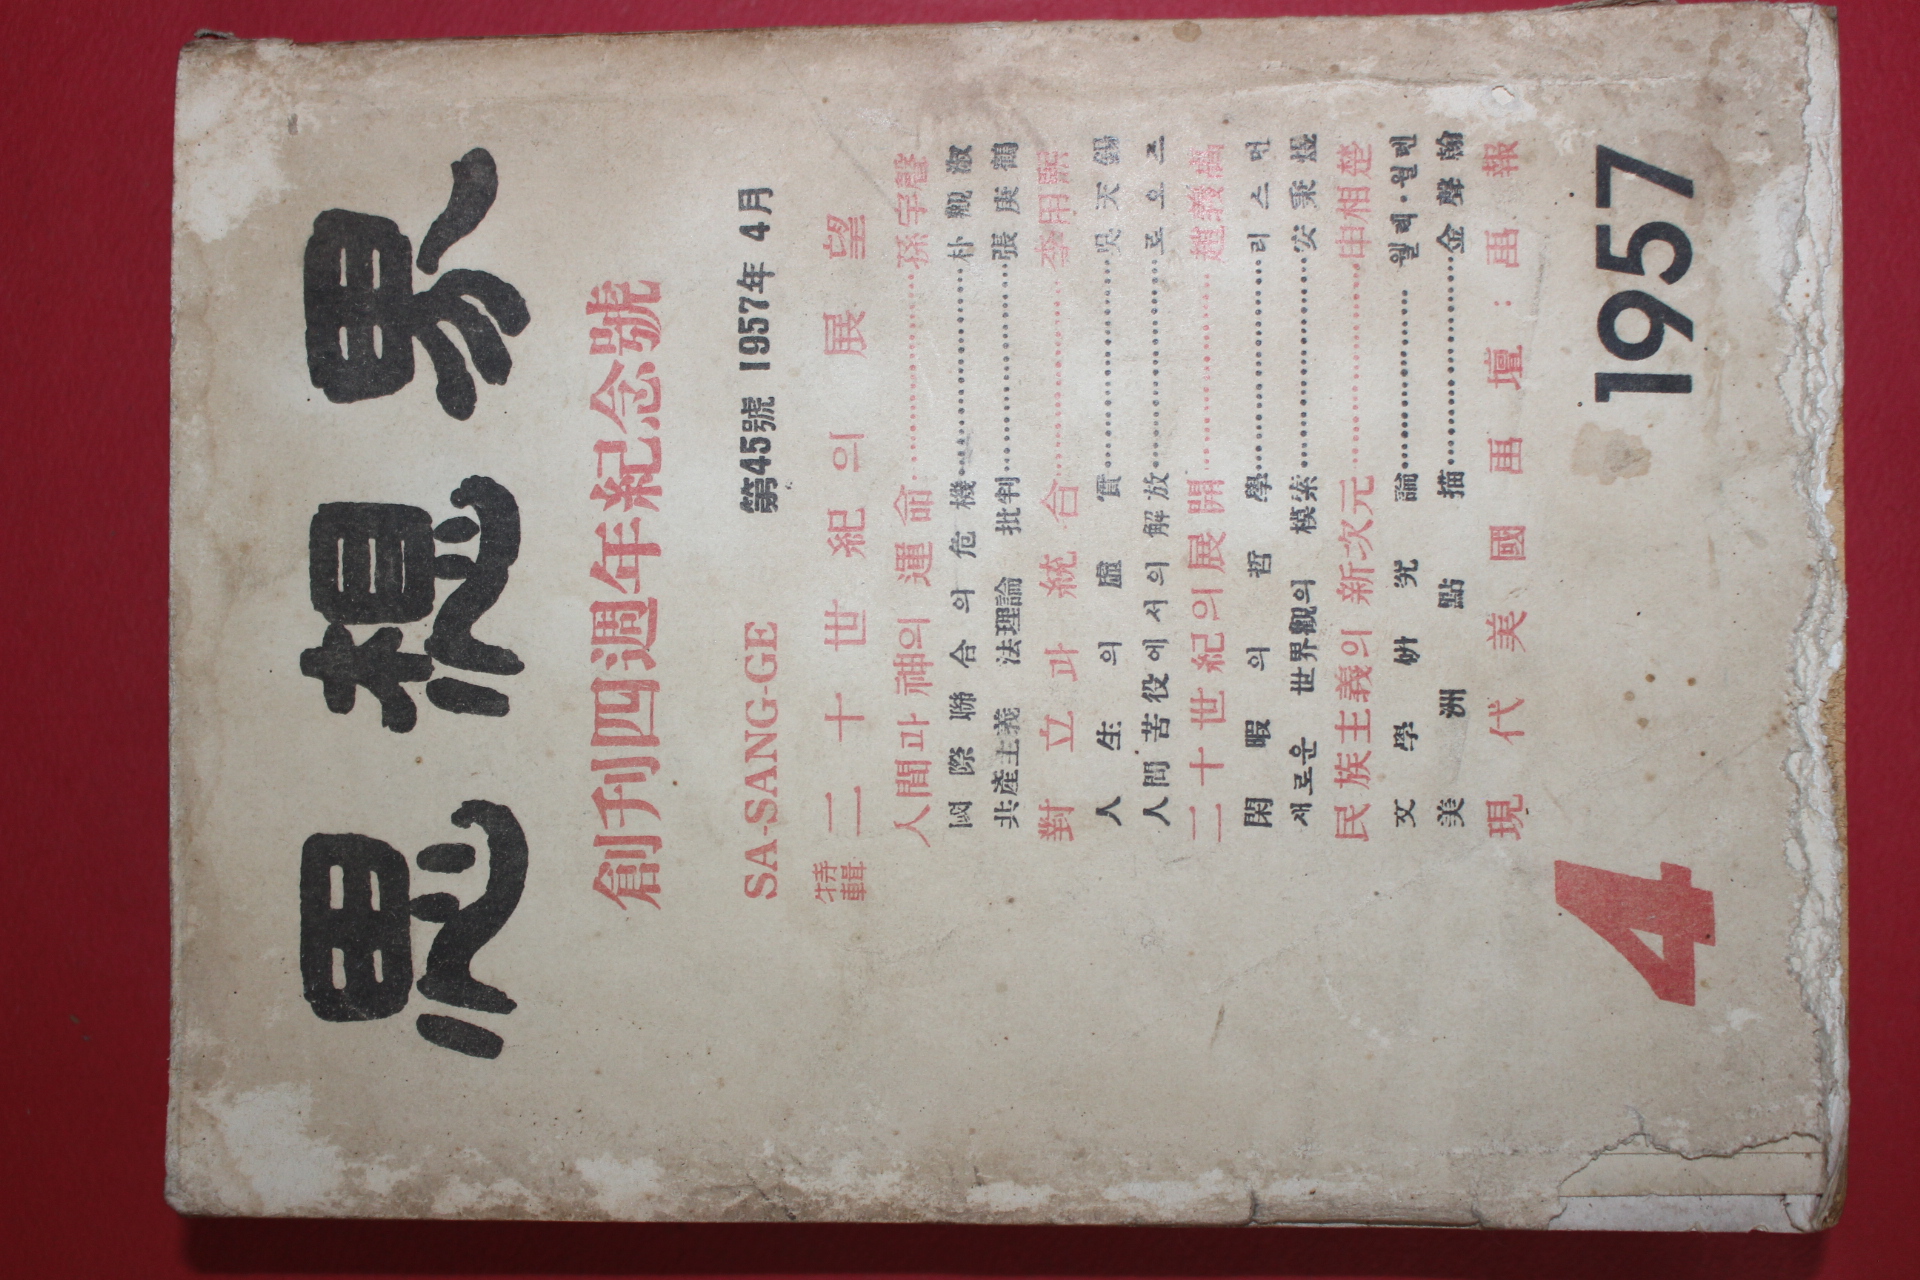 思想界
創刊四週年紀念號
SA-SANG-GE 第45號 1957年 4月
特輯 二十世紀의展望
人間과 神의 運命……孫宇聲
國際聯合의 危機……朴觀淑
共産主義 法理論 批判……張庚鶴
對立과 統合……
人生의 虛實……吳天錫
人間苦役에서의 解放……로오
二十世紀의 展開……趙義卨
閑暇의 哲學……리스먼
새로운 世界觀의 模索……安秉煜
民族主義의 新次元……申相楚
文學硏究論……월렉·월렌
美洲點描……金聲翰
現代美國畵壇:畵報
4 1957